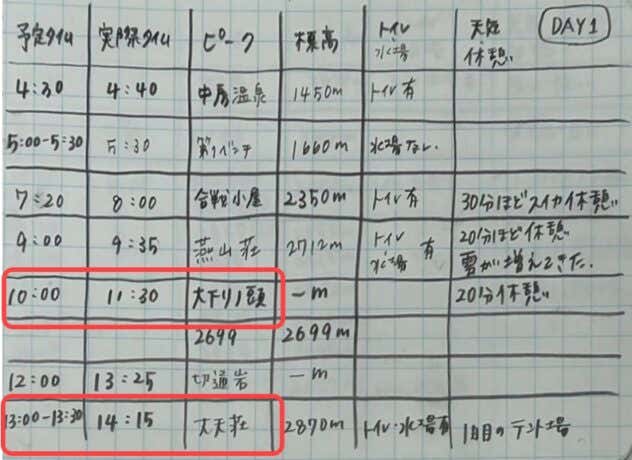 DAY1
予定タイム 実際タイム ピーク 標高 トイレ 水場 天気 休憩
4:30 4:40 中房温泉 1450m トイレ有
5:00-5:30 5:30 第1ベンチ 1660m 水場なし.
7:20 8:00 合戦小屋 2350m トイレ有 30分ほどスイカ休憩
9:00 9:35 燕山荘 2712m トイレ 水場 有 20分ほど休憩 雲が増えてきた.
10:00 11:30 大下りノ頭 ーm 20分休憩
2699 2699m
12:00 13:25 切通岩 ーm
13:00-13:30 14:15 大天荘 2870m トイレ・水場有 1日目のテント場